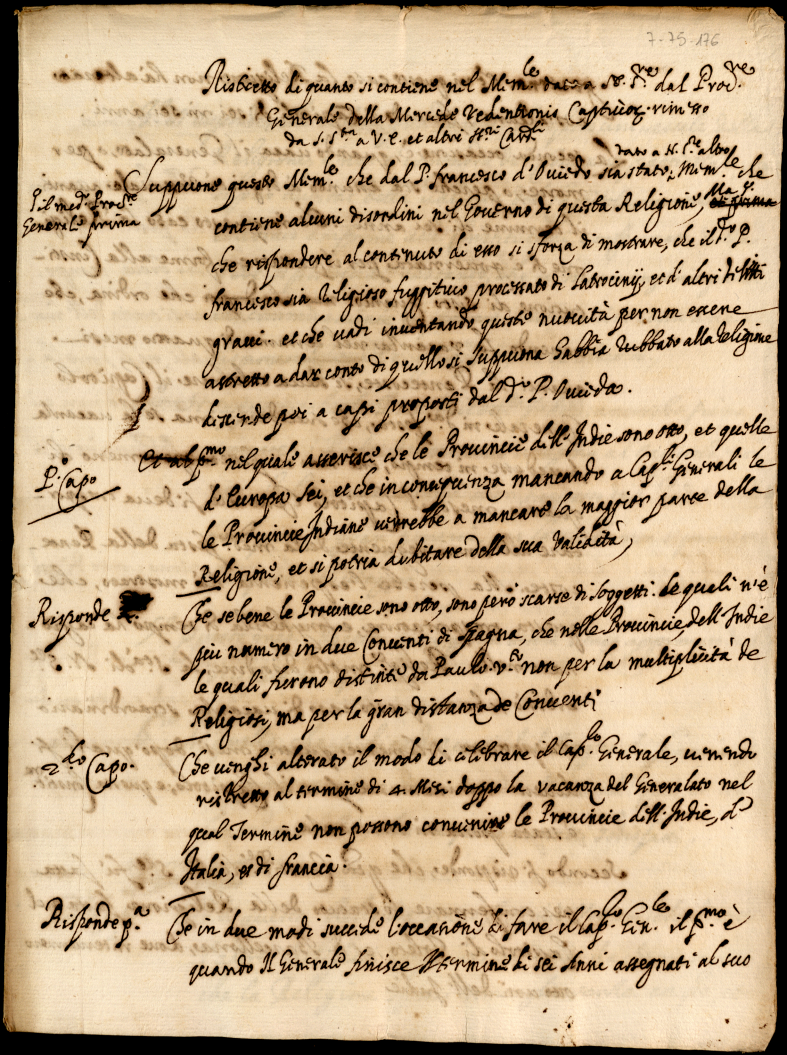 7-75-176
Ristretto di quanto si contiene nel Mem.le dato a N. S.re dal Proc.re
Generale della Mercede Redentionis Captivor. rimesso
da S. S.tà a V. E. et altri SS.ri Card.li
dato a N. S.re altro
Suppuone questo Mem.le che dal P. francesco d'Oviedo sia stato Mem.le che
P. il med.o Proc.re
Generale prima
contiene alcuni disordini nel Governo di questa Religione, Ma p.a
che rispondere al contenuto di esso si sforza di mostrare, che il d.o P.
francesco sia Religioso fuggitivo processato di Latrocinij, et d'altri delitti
gravi. et che vadi inventando queste nuovità per non essere
astretto a dar conto di quello si suppuona habbia rubbato alla Religione
discende poi a capi proposti dal d.o P. Oviedo.
P.o Capo
Et al p.mo nel quale asserisce che le Provincie dell'Indie sono otto, et quelle
d'Europa sei, et che in conseguenza mancando a Cap.li Generali le
le Provincie Indiane verrebbe a mancare la maggior parte della
Religione, et si potria dubitare della sua Validità,
Risponde
Che se bene le Provincie sono otto, sono però scarse di soggetti. de quali n'è
più numero in due Conventi di Spagna, che nelle Provincie dell'Indie
le quali furono distinte da Paulo V.to non per la multiplicità de
Religiosi, ma per la gran distanza de Conventi
2.do Capo.
Che venghi alterato il modo di celebrare il Cap.lo Generale, venendo
ristretto al termine di 4. Mesi doppo la vacanza del Generalato nel
qual Termine non possono convenire le Provincie dell'Indie, d'
Italia, et di francia.
Risponde p.a
Che in due modi succede l'occasione di fare il Cap.lo Gen.le il p.mo è
quando Il Generale finisce Il termine di sei Anni assegnati al suo